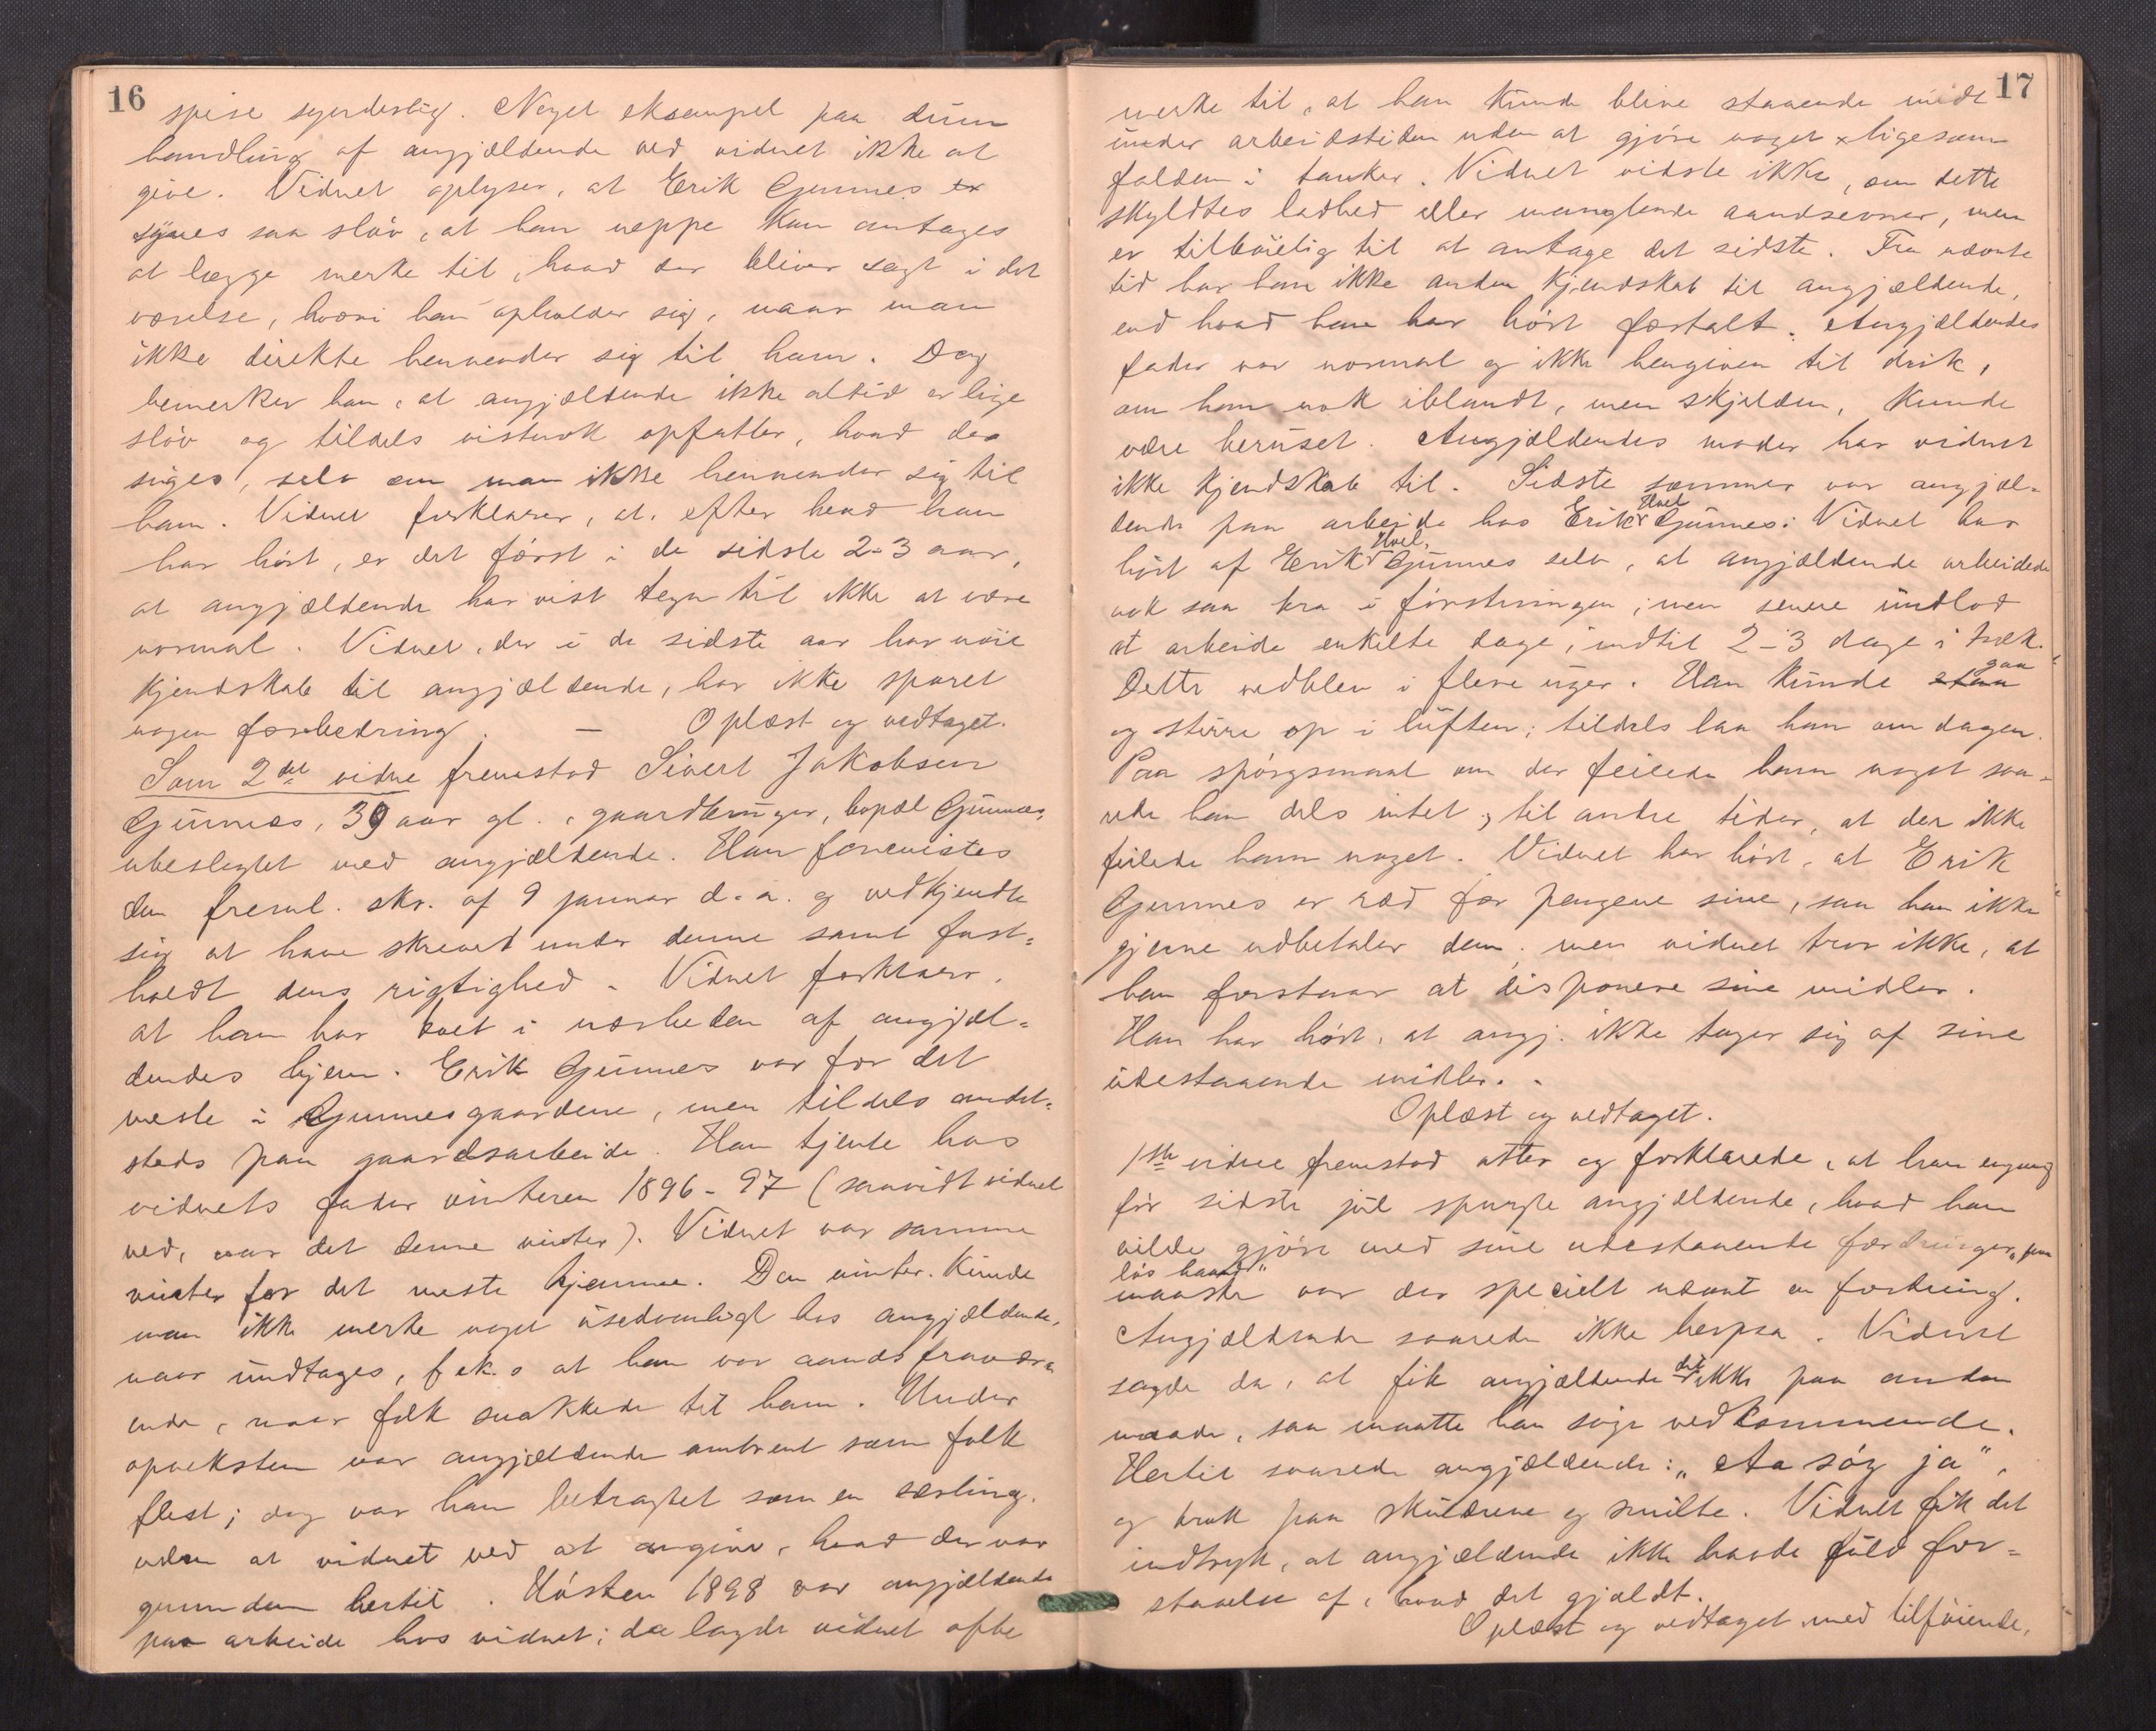 16
spise synderlig. Noget eksempel paa dum
handling af angjældende ved vidnet ikke at
give. Vidnet oplyser, at Erik Gunnes er
synes saa sløv, at han neppe kan antages
at lægge merke til, hvad der bliver sagt i det
værelse, hvori han opholder sig, naar man
ikke direkte henvender sig til ham. Dog
bemerker han, at angjældende ikke altid er lige
sløv og tildels vistnok opfatter, hvad der
siges, selv om man ikke henvender sig til
ham. Vidnet forklarer, at, efter hvad han
har hørt, er det først i de sidste 2-3 aar,
at angjældende har vist tegn til ikke at være
normal. Vidnet, der i de sidste aar har nøie
kjendskab til angjældende, har ikke sporet
nogen forbedring. — Oplæst og vedtaget.
Som 2det vidne fremstod Sivert Jakobsen
Gunnes, 39 aar gl., gaardbruger, bopæl Gunnes,
ubeslegtet med angjældende. Han forevistes
den freml. skr. af 9 januar d.a. og vedkjendte
sig at have skrevet under denne samt fast=
holdt dens rigtighed. Vidnet forklarer,
at han har boet i nærheden af angjæl=
dendes hjem. Erik Gunnes var for det
meste i Gunnesgaardene, men tildels andet=
steds paa gaardsarbeide. Han tjente hos
vidnets fader vinteren 1896-97 (saavidt vidnet
ved, var det denne vinter). Vidnet var samme
vinter for det meste hjemme. Den vinter kunde
man ikke merke noget usedvanligt hos angjældende,
naar undtages, f.eks at han var aandsfravær=
ende, naar folk snakkede til ham. Under
opveksten var angjældende omtrent som folk
flest; dog var han betragtet som en særling,
uden at vidnet ved at angive, hvad der var
grunden hertil. Høsten 1898 var angjældende
paa arbeide hos vidnet; da lagde vidnet ofte
17
merke til, at han kunde blive staaende midt
under arbeidstiden uden at gjøre noget ligesom
falden i tanker. Vidnet vidste ikke, om dette
skyldtes ladhed eller manglende aandsevner, men
er tilbøielig til at antage det sidste. Fra nævnte
tid har han ikke anden kjendskab til angjældende,
end hvad han har hørt fortalt. Angjældendes
fader var normal og ikke hengiven til drik,
om han nok iblandt, men skjelden, kunde
være beruset. Angjældendes moder har vidnet
ikke kjendskab til. Sidste sommer var angjæl=
dende paa arbeide hos Erik Hoel Gunnes. Vidnet har
hørt af Erik Hoel Gunnes selv, at angjældende arbeidede
nok saa bra i førstningen; men senere undlod
at arbeide enkelte dage, indtil 2-3 dage i træk.
Dette vedblev i flere uger. Han kunde staa gaa
og stirre op i luften; tildels laa han om dagen.
Paa spørgsmaal om der feilede ham noget sva=
rede han dels intet, til andre tider, at der ikke
feilede ham noget. Vidnet har hørt, at Erik
Gunnes er ræd for pengene sine, saa han ikke
gjerne udbetaler dem; men vidnet tror ikke, at
han forstaar at disponere sine midler.
Han har hørt, at angj. ikke tager sig af sine
udestaaende midler.
Oplæst og vedtaget.
1ste vidne fremstod atter og forklarede, at han engang
før sidste jul spurgte angjældende, hvad han
vilde gjøre med sine udestaaende fordringer „paa
løs haand"
maaske var der specielt nævnt en fordring.
Angjældende svarede ikke herpaa. Vidnet
sagde da, at fik angjældende det ikke paa anden
maade, saa maatte han søge vedkommende.
Hertil svarede angjældende: „Aa søg ja",
og trak paa skuldrene og smilte. Vidnet fik det
indtryk, at angjældende ikke havde fuld for=
staaelse af, hvad det gjældt.
Oplæst og vedtaget med tilføiende,